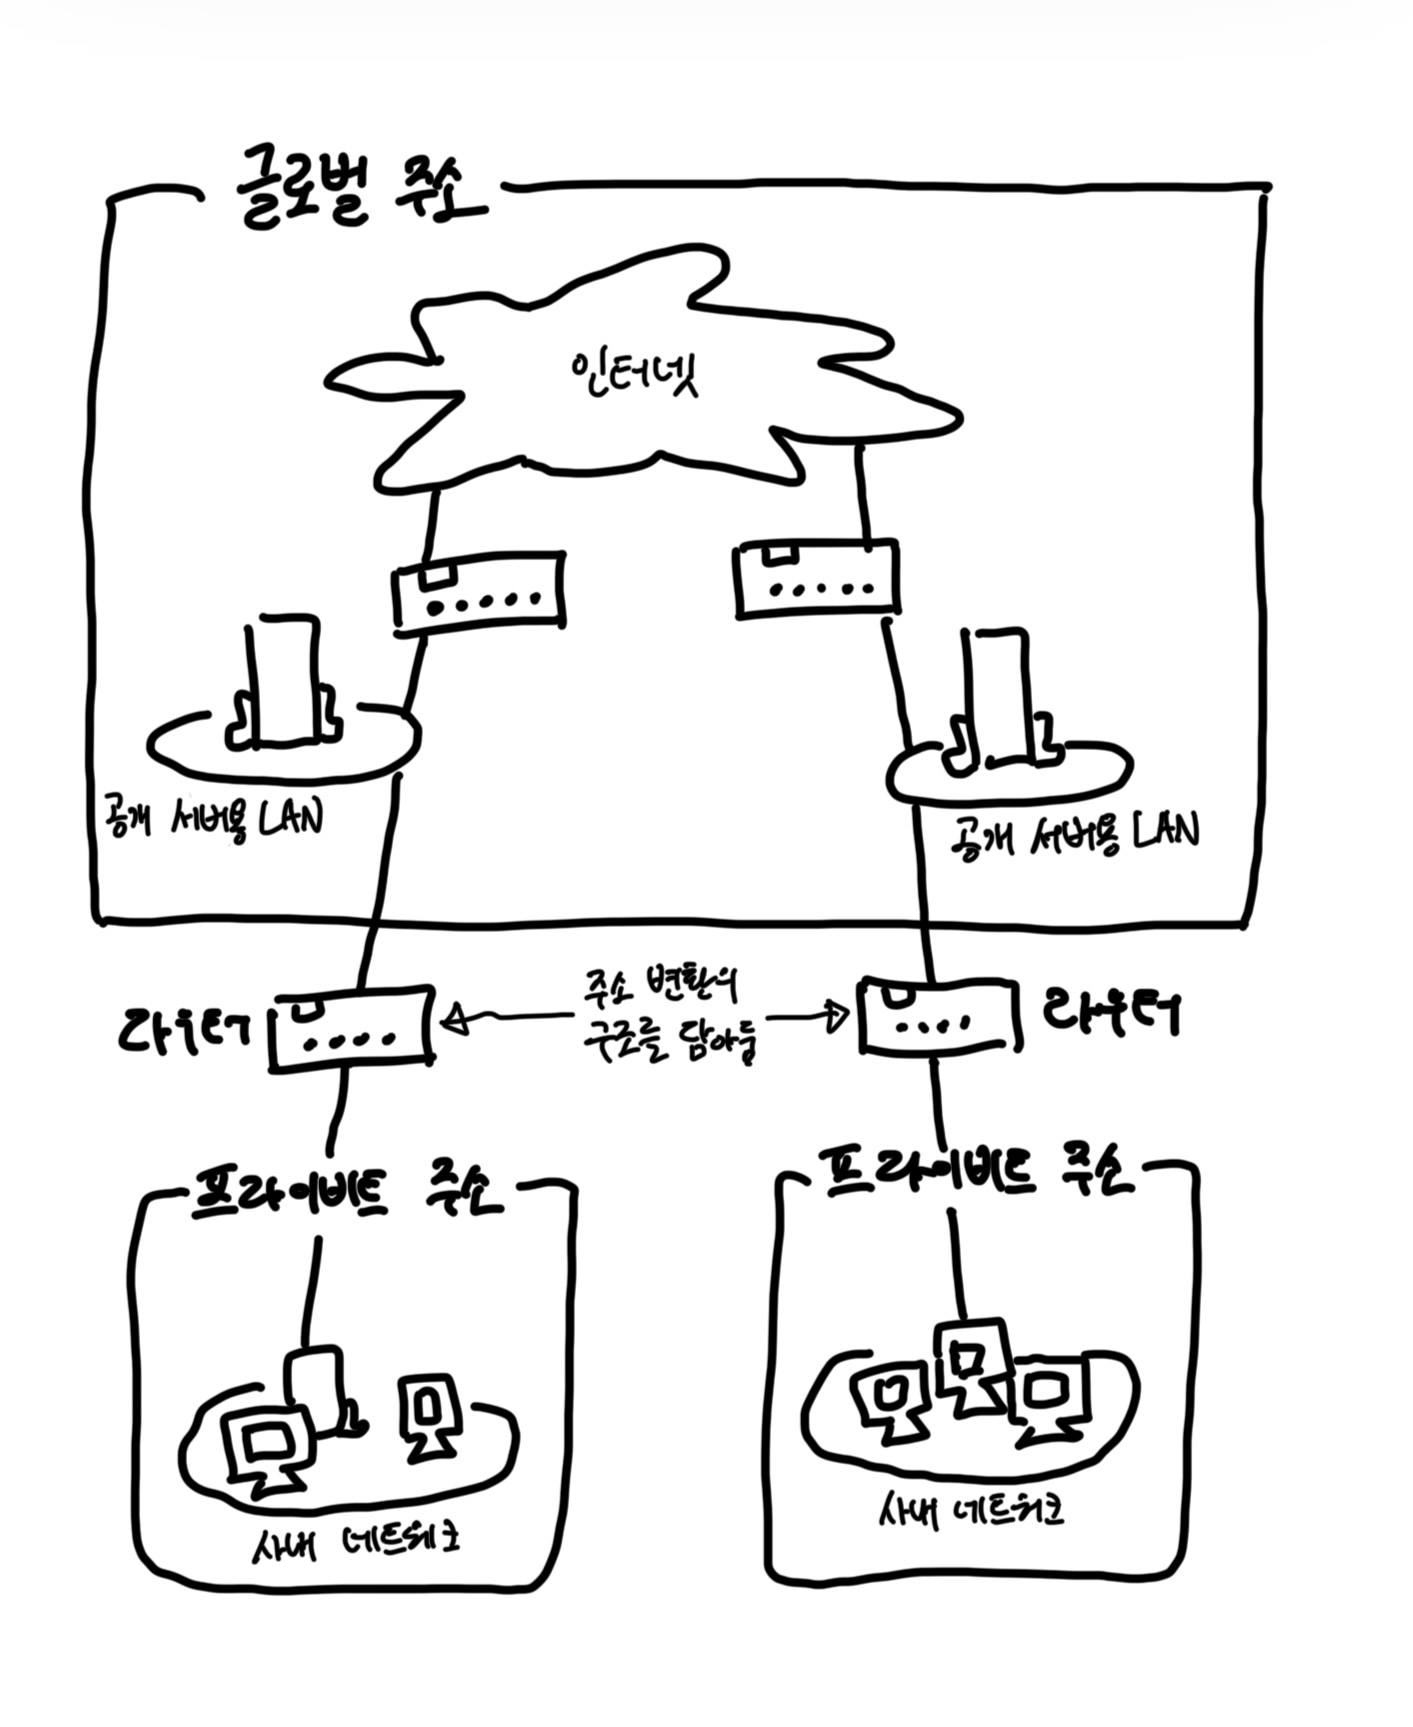 글로벌 주소
인터넷
공개 서버용 LAN
공개 서버용 LAN
라우터
주소 변환의
구조를 담아둠
라우터
프라이베트 주소
프라이베트 주소
사내 네트워크
사내 네트워크